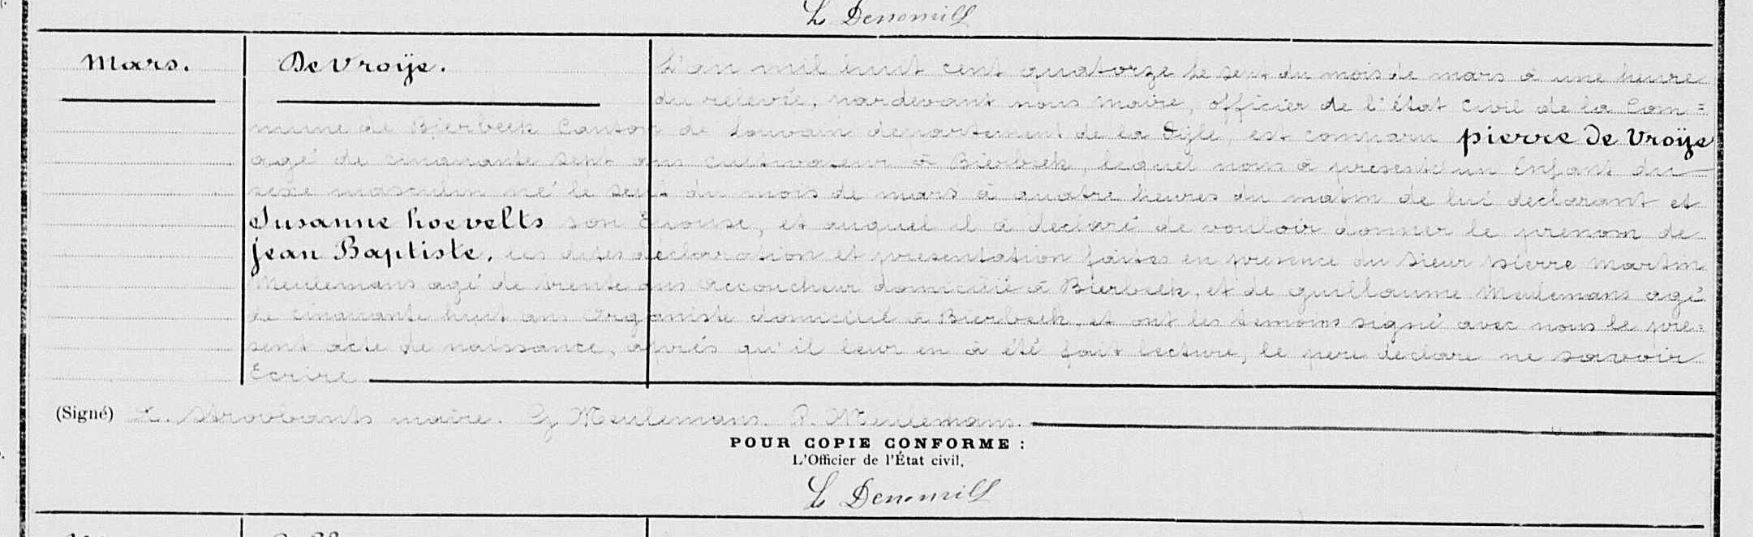 Mars.
De Vroije.
L'an mil huit cent quatorze le sept du mois de mars à une heure
du relevée, pardevant nous maire, officier de l'état civil de la Com=
mune de Bierbeek Canton de Louvain departement de la Dijle, est comparu pierre De Vroije
agé de cinquante sept ans cultivateur à Bierbeek, lequel nous à presenté un Enfant du
sexe masculin né le sept du mois de mars à quatre heures du matin de lui declarant et
Susanne hoevelts son Epouse, et auquel il à declaré de vouloir donner le prenom de
jean Baptiste, les dites declaration et presentation faites en presence du Sieur pierre martin
Meulemans agé de trente ans accoucheur domicilié à Bierbeek, et de guillaume Meulemans agé
de cinquante huit ans Organiste domicilié à Bierbeek, et ont les temoins signé avec nous le pre=
sent acte de naissance, après qu'il leur en à été fait lecture, le pere declare ne savoir
Ecrire
(Signé) Stroobants maire. G Meulemans. P. Meulemans.
POUR COPIE CONFORME :
L'Officier de l'État civil,